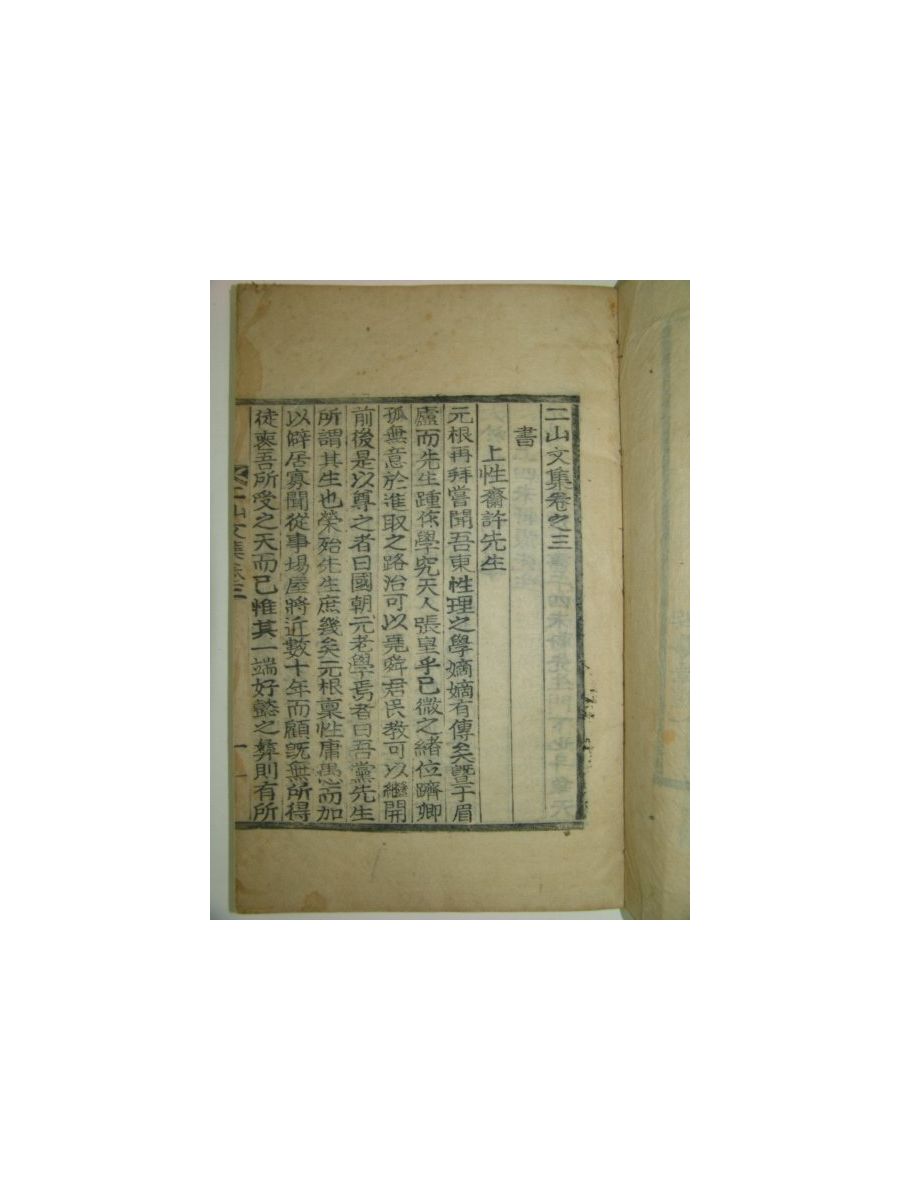 二山文集卷之三
書
上性齋許先生
元根再拜嘗聞吾東性理之學嫡嫡有傳矣曁于眉
廬而先生踵係學究天人張皇乎已微之緖位躋卿
孤無意於進取之路治可以堯舜君民教可以繼開
前後是以尊之者曰國朝元老學焉者曰吾黨先生
所謂其生也榮殆先生庶幾矣元根稟性庸愚而加
以僻居寡聞從事場屋將近數十年而顧旣無所得
徒喪吾所受之天而已惟其一端好懿之彛則有所
二山文集卷三
一